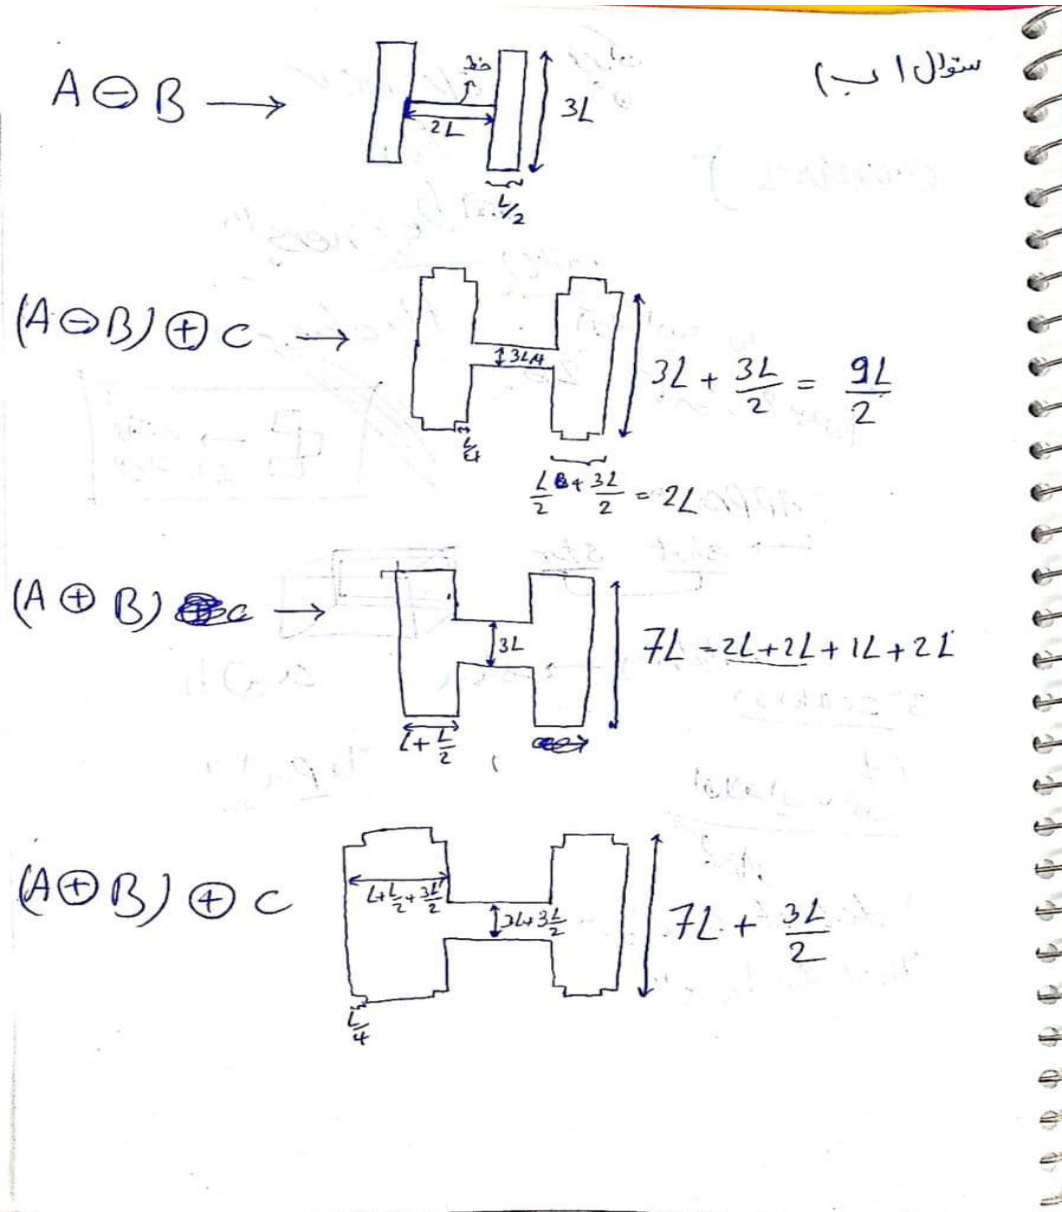 سؤال ۱ ب)
A ⊖ B ⟶
خط
2L
3L
L/2
(A ⊖ B) ⊕ C ⟶
L/4
3L + 3L/2 = 9L/2
L/2 + 3L/2 = 2L
(A ⊕ B) ⟶
3L
7L = 2L+2L + 1L + 2L
L + L/2
(A ⊕ B) ⊕ C
L + L/2 + 3L/2
3L + 3L/2
7L + 3L/2
L/4